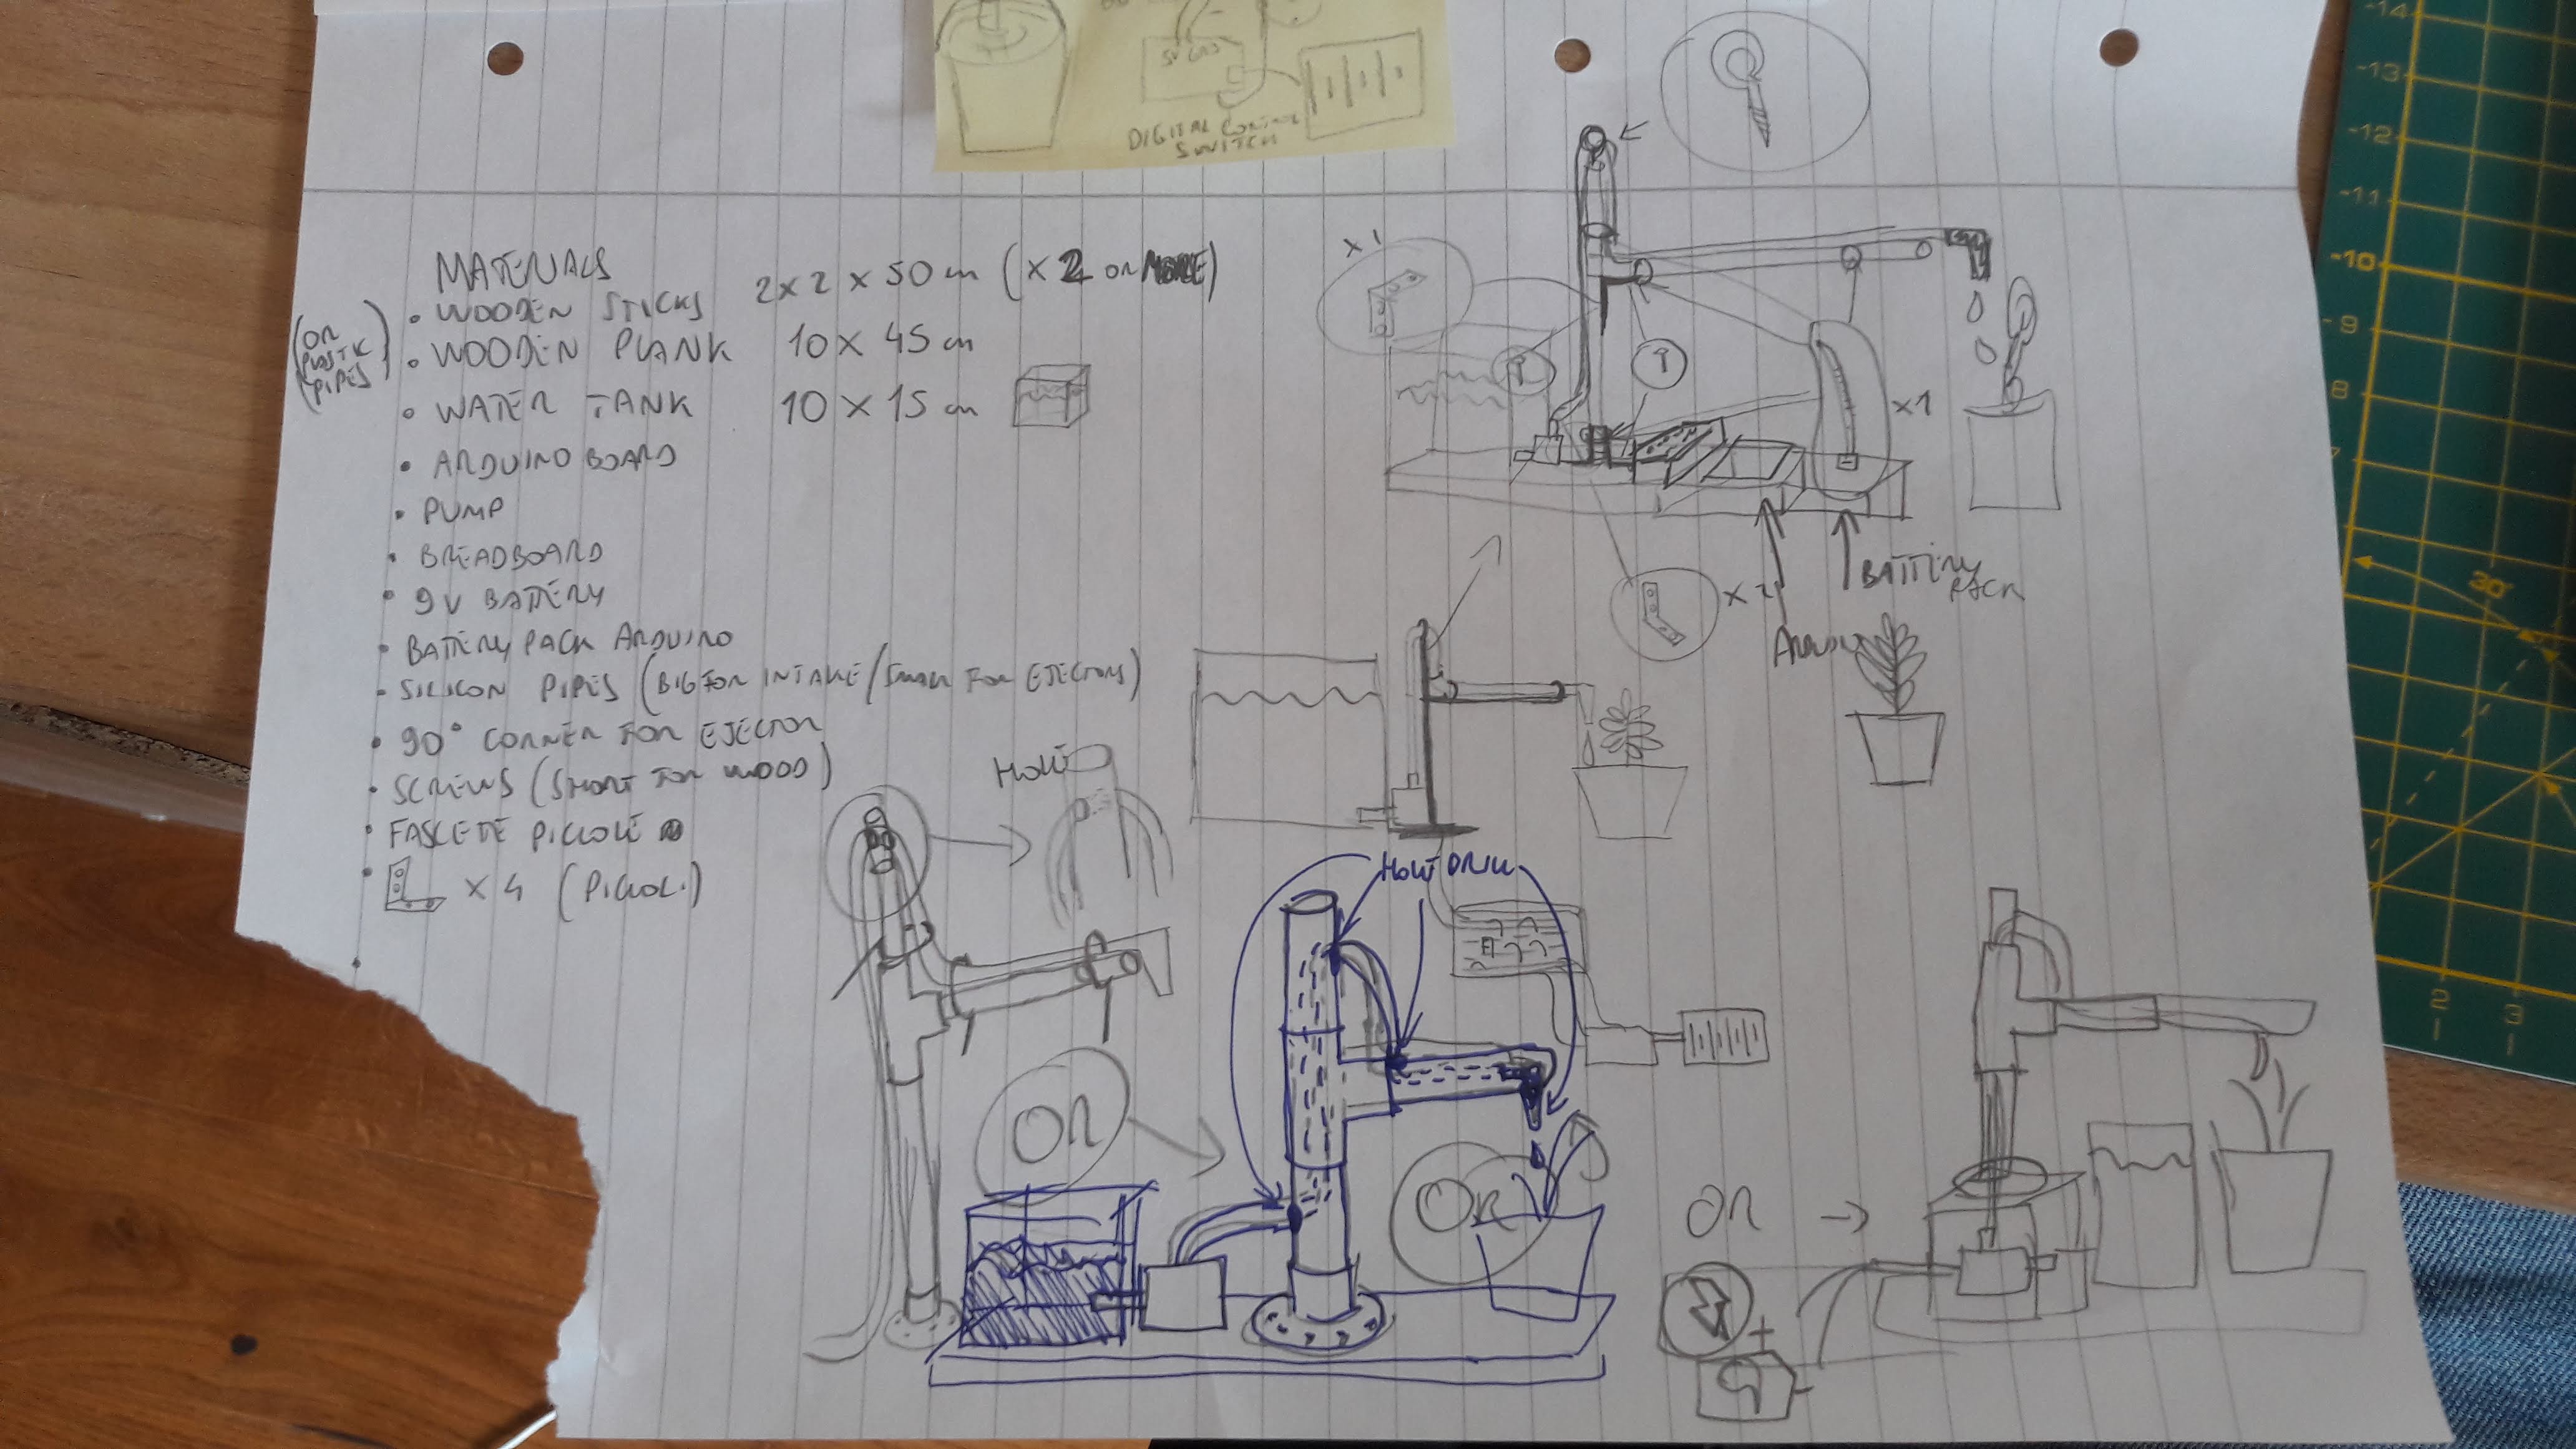 DIGITAL CONTROL
SWITCH
MATERIALS
• WOODEN STICKS 2x2x50 cm (x2 OR MORE)
(OR PLASTIC PIPES)
• WOODEN PLANK 10x45 cm
• WATER TANK 10x15 cm
• ARDUINO BOARD
• PUMP
• BREADBOARD
• 9V BATTERY
• BATTERY PACK ARDUINO
• SILICON PIPES (BIG FOR INTAKE/SMALL FOR EJECTORS)
• 90° CORNER FOR EJECTOR
• SCREWS (SHORT FOR WOOD)
• FASCETTE PICCOLE
• x4 (PICCOLI)
x1
x1
x2
BATTERY
PACK
ARDUINO
HOLE
HOLE DRILL
OR
OR
OR
+
9
-14
-13
-12
-11
-10
-9
8
7
30°
2
3